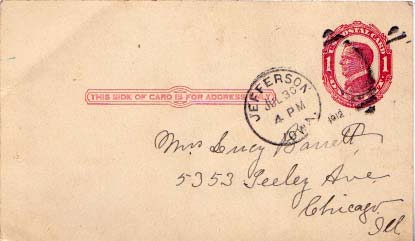 U.S. POSTAL CARD
1 1
JEFFERSON
JUL 30
4 PM
IOWA
1912
THIS SIDE OF CARD IS FOR ADDRESS ONLY
Mrs Lucy Barrett,
5353 Seeley Ave.
Chicago,
Ill.